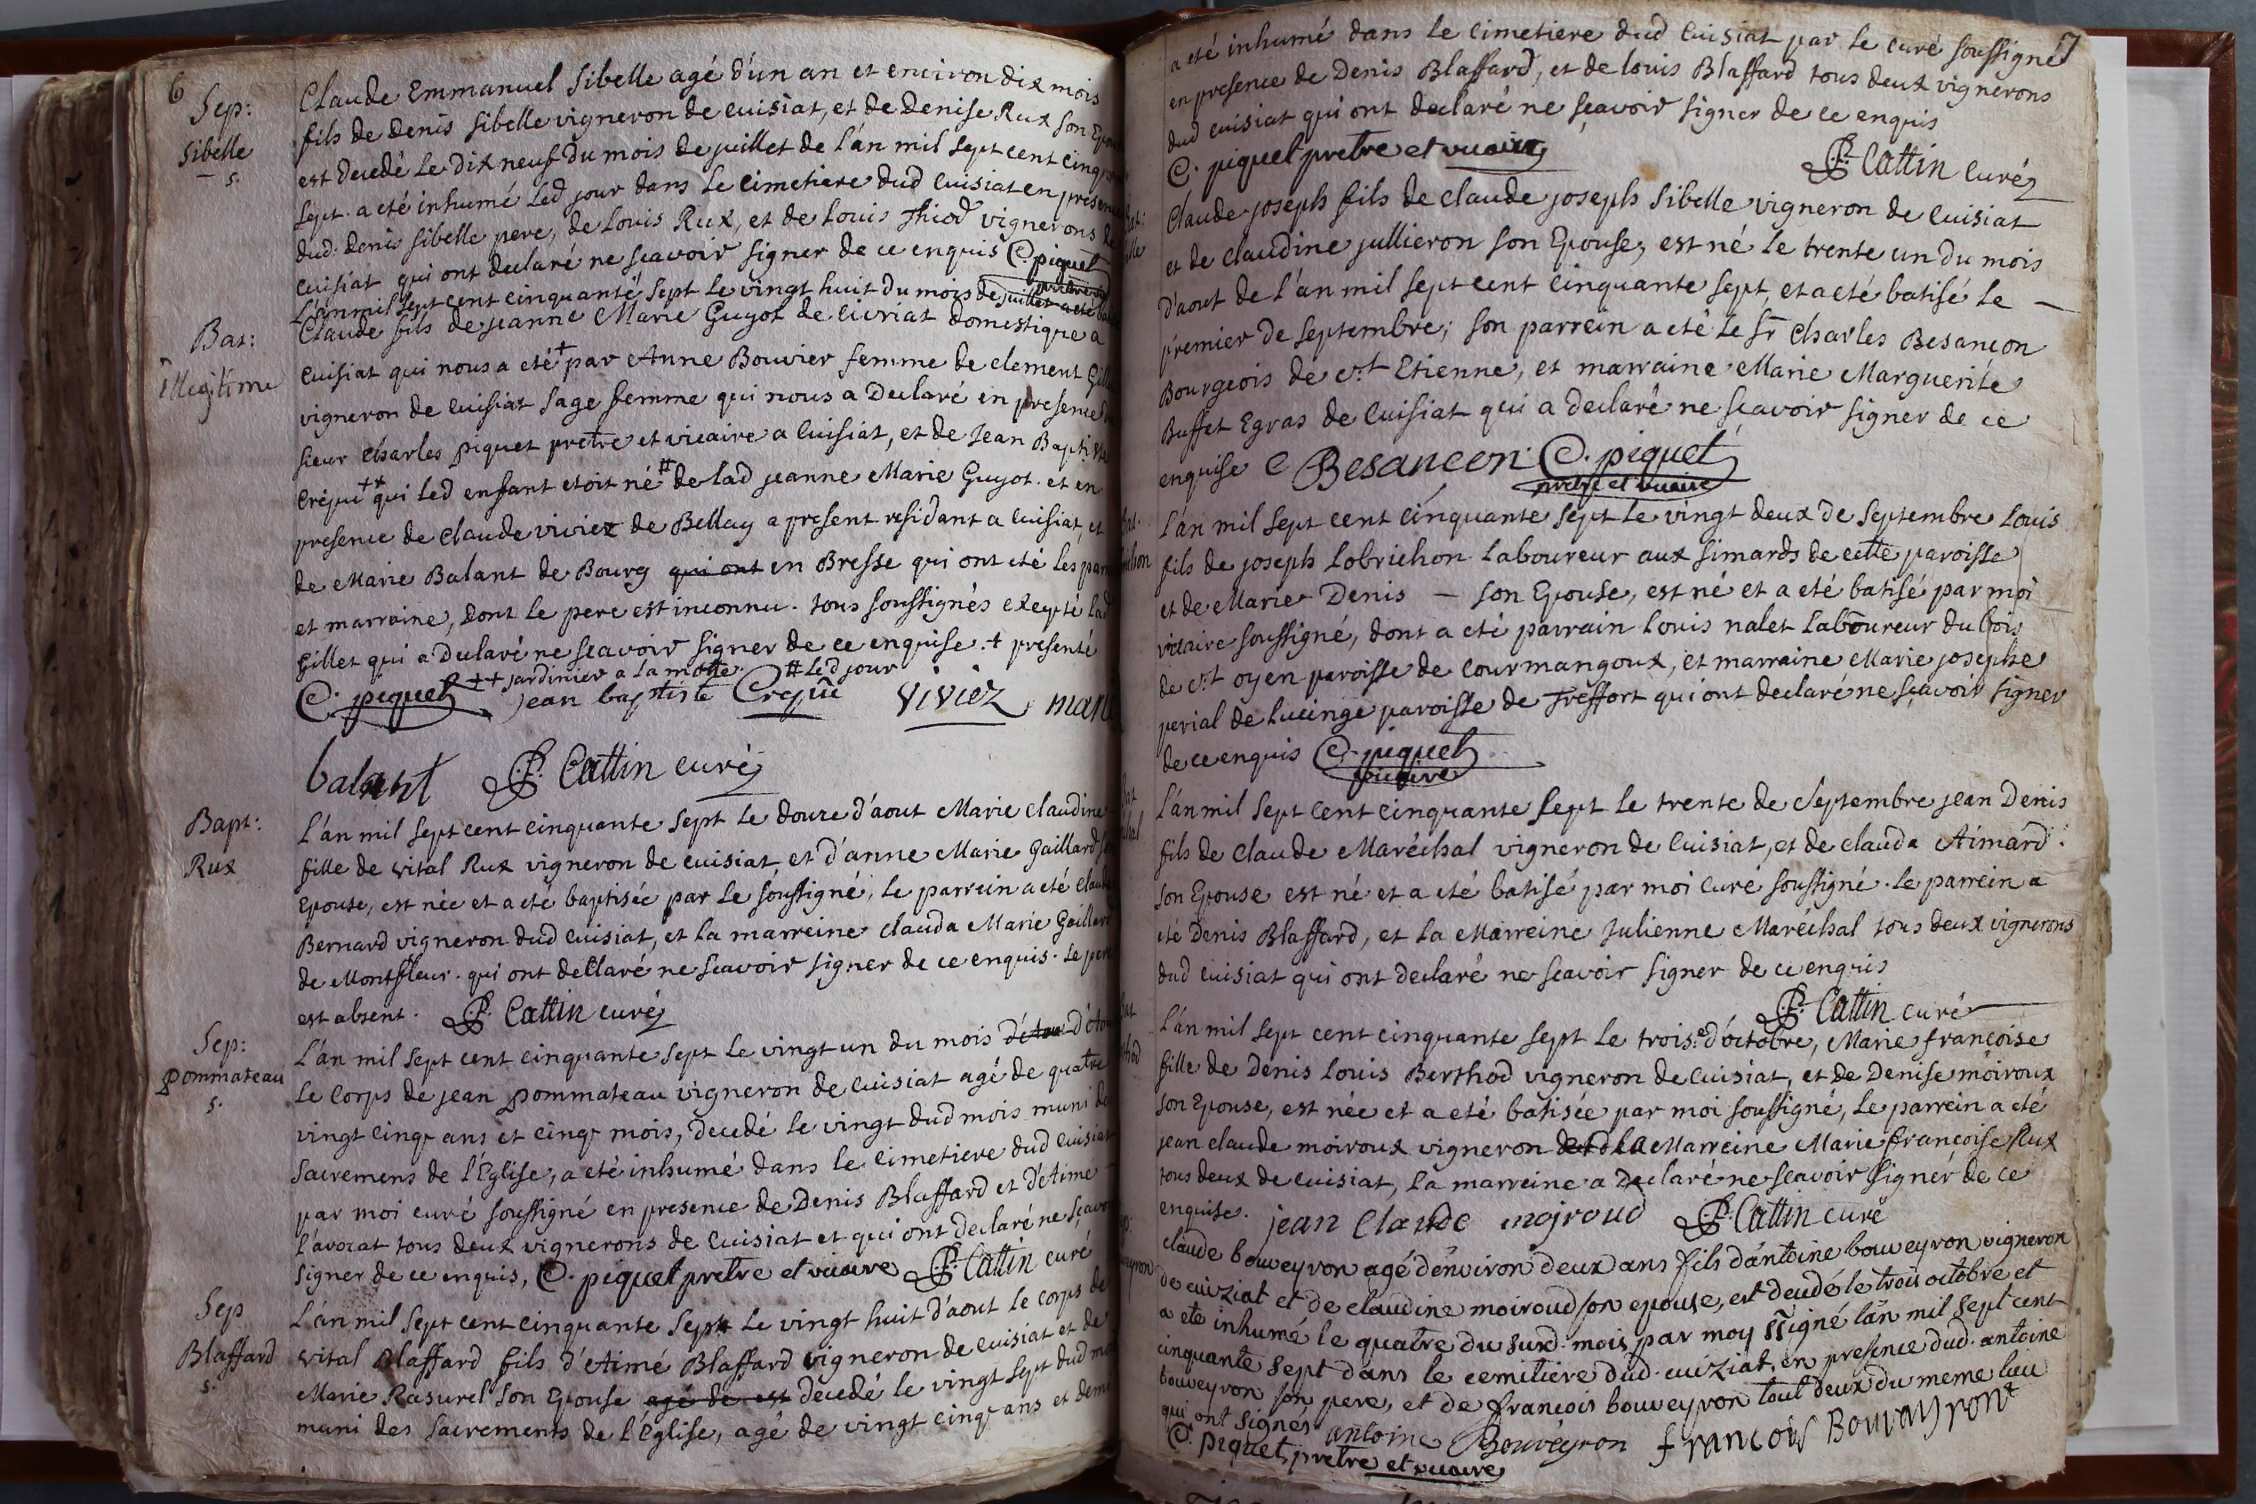 6
Sep:
Sibelle
s.
Claude Emmanuel Sibelle agé d'un an et environ dix mois
fils de denis Sibelle vigneron de cuisiat, et de denise Rux son
est decedé le dix neuf du mois de juillet de l'an mil sept cent
sept. a eté inhumé led jour dans le cimetiere dud cuisiat en
dud. denis Sibelle pere, de Louis Rux, et de Louis Thiod vignerons de
cuisiat qui ont declaré ne scavoir signer de ce enquis C. piquet
L'an mil sept cent cinquante sept le vingt huit du mois de juillet a eté
Bat:
illegitime
Claude fils de jeanne Marie Guyot de civriat domestique a
cuisiat qui nous a eté + par Anne Bouvier femme de clement
vigneron de cuisiat sage femme qui nous a declaré en presence
sieur charles piquet pretre et vicaire a cuisiat, et de Jean Baptiste
Crépu ++ qui led enfant etoit né # de lad jeanne Marie Guyot. et en
presence de claude viviez de Bellay a present residant a cuisiat, et
de Marie Balant de Bourg qui ont en Bresse qui ont eté les
et marraine, dont le pere est inconnu. tous soussignés exepté lad
Gillet qui a declaré ne scavoir signer de ce enquise. + presenté
++ jardinier a la motte. # led jour
C. piquet jean baptiste Crepu viviez
balant P. Cattin curé
Bapt:
Rux
L'an mil sept cent cinquante sept le douze d'aout Marie claudine
fille de vital Rux vigneron de cuisiat et d'anne Marie Gaillard
Epouse, est née et a eté baptisée par le soussigné, le parrein a eté
Bernard vigneron dud cuisiat, et la marreine clauda Marie Gaillard
de Montfleur. qui ont declaré ne scavoir signer de ce enquis. le pere
est absent. P. Cattin curé
Sep:
pommateau
s.
L'an mil sept cent cinquante sept le vingt un du mois
le corps de jean pommateau vigneron de cuisiat agé de quatre
vingt cinq ans et cinq mois, decedé le vingt dud mois muni
sacremens de l'Eglise, a eté inhumé dans le cimetiere dud cuisiat
par moi curé soussigné en presence de Denis Blaffard et d'Aimé
l'avocat tous deux vignerons de cuisiat et qui ont declaré ne
signer de ce enquis, C. piquet pretre et vicaire P. Cattin curé
Sep
Blaffard
s.
L'an mil sept cent cinquante sept le vingt huit d'aout le corps de
vital Blaffard fils d'Aimé Blaffard vigneron de cuisiat et de
Marie Rasurel son Epouse agé de est decedé le vingt sept dud
muni des sacrements de l'Eglise, agé de vingt cinq ans et demi
7
a eté inhumé dans le cimetiere dud cuisiat par le curé soussigné
en presence de Denis Blaffard, et de louis Blaffard tous deux vignerons
dud cuisiat qui ont declaré ne sçavoir signer de ce enquis
C. piquet pretre et vicaire P. Cattin curé
Claude joseph fils de claude joseph Sibelle vigneron de cuisiat
et de claudine jullieron son Epouse, est né le trente un du mois
d'aout de l'an mil sept cent cinquante sept, et a eté batisé le
premier de septembre, son parrein a eté le sr charles Besançon
Bourgeois de st Etienne, et marraine Marie Marguerite
Buffet Egras de cuisiat qui a declaré ne sçavoir signer de ce
enquise C Besançon C. piquet
pretre et vicaire
L'an mil sept cent cinquante sept le vingt deux de septembre Louis
fils de joseph Lobrichon Laboureur aux simards de cette paroisse
et de Marie Denis — son Epouse, est né et a eté batisé par moi
vicaire soussigné, dont a eté parrain Louis nalet Laboureur du bois
de st oyen paroisse de courmangoux, et marraine Marie josephe
perial de lucinge paroisse de Treffort qui ont declaré ne sçavoir signer
de ce enquis C. piquet
vicaire
L'an mil sept cent cinquante sept le trente de septembre jean Denis
fils de claude Maréchal vigneron de cuisiat, et de clauda Aimard
son Epouse est né et a eté batisé par moi curé soussigné. le parrein a
eté Denis Blaffard, et la Marreine Julienne Maréchal tous deux vignerons
dud cuisiat qui ont declaré ne scavoir signer de ce enquis
P. Cattin curé
L'an mil sept cent cinquante sept le trois.e d'octobre, Marie françoise
fille de Denis Louis Berthod vigneron de cuisiat, et de Denise moiroux
son Epouse, est née et a eté batisée par moi soussigné, le parrein a eté
jean claude moiroux vigneron la Marreine Marie francoise Rux
tous deux de cuisiat, la marreine a declaré ne scavoir signer de ce
enquise. jean Claude mojroud P. Cattin curé
claude bouveyron agé d'environ deux ans fils d'antoine bouveyron vigneron
de cuiziat et de claudine moiroud son epouse, est decedé le trois octobre et
a ete inhumé le quatre du susd. mois par moy ssigné l'an mil sept cent
cinquante sept dans le cemitiere dud. cuiziat, en presence dud. antoine
bouveyron son pere, et de francois bouveyron tout deux du meme lieu
qui ont signés antoine Bouvéyron francois Bouvayron
C. piquet, pretre et vicaire